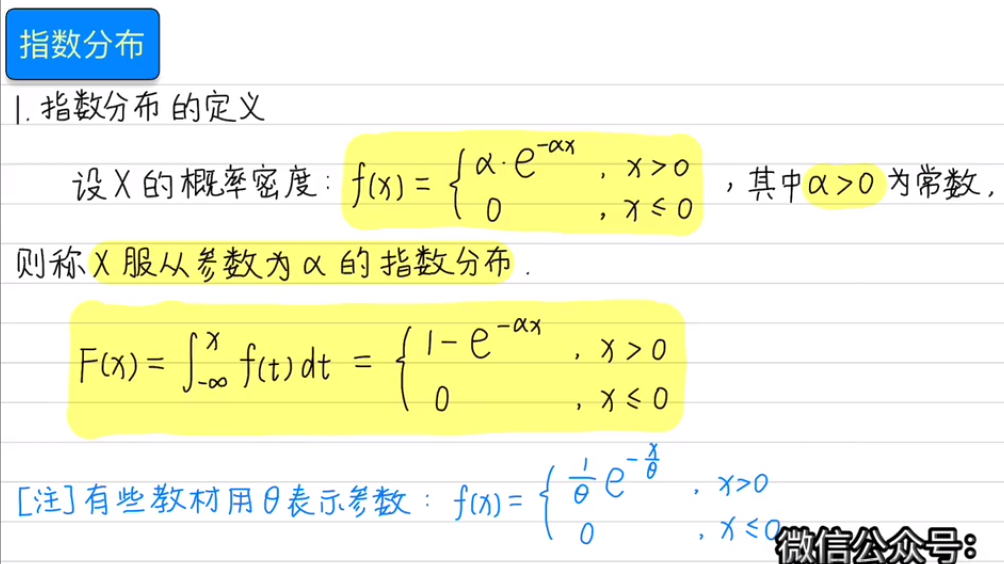 指数分布
1. 指数分布的定义
设X的概率密度: f(x) = { α·e^{-αx} , x > 0 ; 0 , x ≤ 0 , 其中 α>0 为常数,
则称 X 服从参数为 α 的指数分布.
F(x) = ∫_{-∞}^{x} f(t) dt = { 1 - e^{-αx} , x > 0 ; 0 , x ≤ 0
[注] 有些教材用θ表示参数: f(x) = { 1/θ e^{-x/θ} , x>0 ; 0 , x ≤ 0
微信公众号: